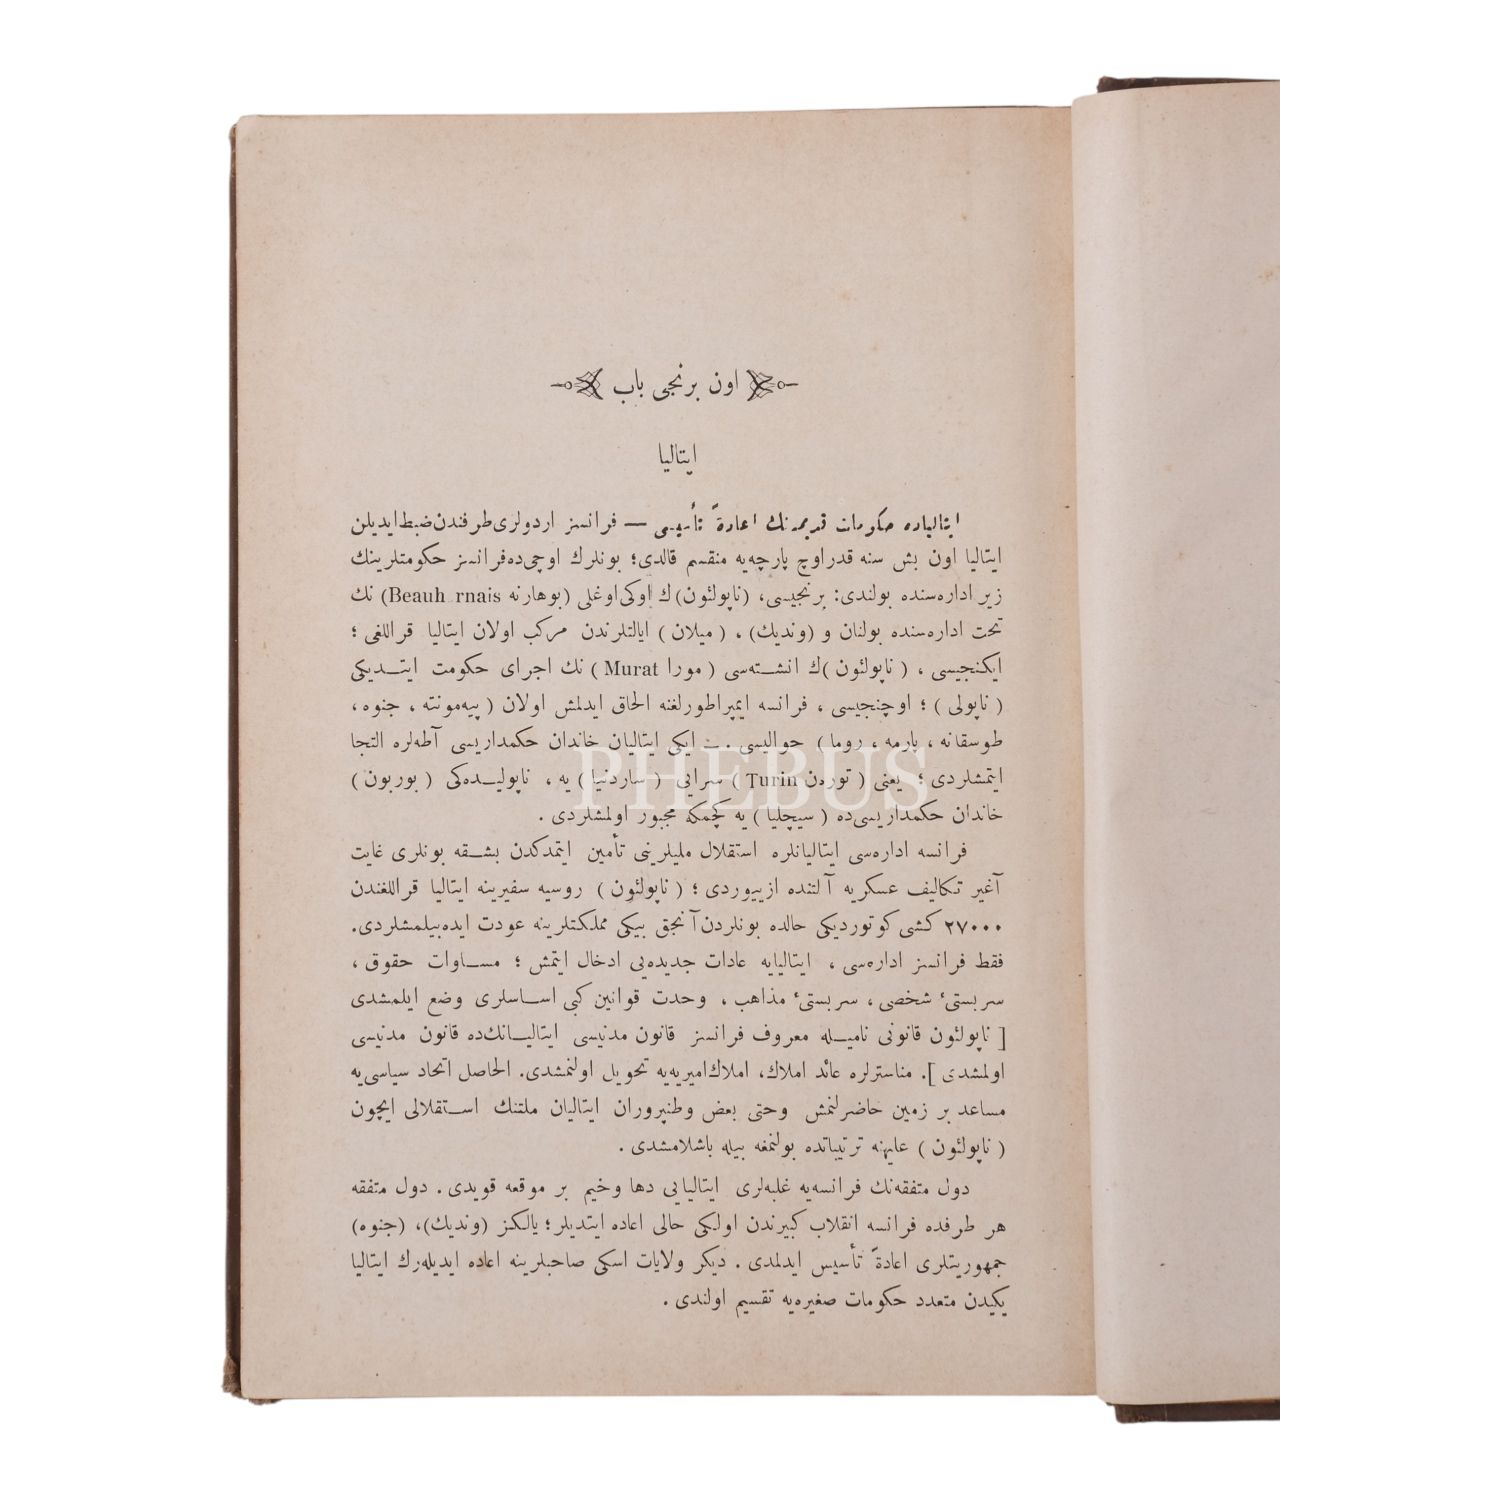 اون برنجی باب
ایتالیا
ایتالیاده حکومات قدیمه‌نك اعادةً تأسیسی — فرانسز اردولری طرفندن ضبط ایدیلن
ایتالیا اون بش سنه قدر اوچ پارچه‌یه منقسم قالدی؛ بونلرك اوچی‌ده فرانسز حکومتلرینك
زیر اداره‌سنده بولندی: برنجیسی، (ناپولئون)ك اوکی اوغلی (بوهارنه Beauh rnais) نك
تحت اداره‌سنده بولنان و (وندیك) ، (میلان) ایالتلرندن مرکب اولان ایتالیا قراللغی ؛
ایکنجیسی ، (ناپولئون)ك انشته‌سی (مورا Murat) نك اجرای حکومت ایتدیکی
(ناپولی) ؛ اوچنجیسی ، فرانسه ایمپراطورلغنه الحاق ایدلمش اولان (پیه‌مونته ، جنوه ،
طوسقانه ، پارمه ، روما) حوالیسی . — ایکی ایتالیان خاندان حکمداریسی آطه‌لره التجا
ایتمشلردی ؛ یعنی (تورەن Turin) سرایی (ساردنیا) یه ، ناپولیده‌کی (بوربون)
خاندان حکمداریسی‌ده (سیچلیا) یه کچمکه مجبور اولمشلردی .
فرانسه اداره‌سی ایتالیانلره استقلال ملیلرینی تأمین ایتمدکدن بشقه بونلری غایت
آغیر تکالیف عسکریه آلتنده ازییوردی ؛ (ناپولئون) روسیه سفیرینه ایتالیا قراللغندن
۲۷۰۰۰ کشی کوتوردیکی حالده بونلردن آنجق بیکی مملکتلرینه عودت ایده‌بیلمشلردی.
فقط فرانسز اداره‌سی ، ایتالیایه عادات جدیده‌یی ادخال ایتمش ؛ مساوات حقوق ،
سربستئ شخصی ، سربستئ مذاهب ، وحدت قوانین کبی اساسلری وضع ایلمشدی
[ ناپولئون قانونی نامیله معروف فرانسز قانون مدنیسی ایتالیانك‌ده قانون مدنیسی
اولمشدی ]. مناسترلره عائد املاك، املاك امیریه‌یه تحویل اولنمشدی. الحاصل اتحاد سیاسی‌یه
مساعد بر زمین حاضرلنمش وحتی بعض وطنپروران ایتالیان ملتنك استقلالی ایچون
(ناپولئون) علیهنه ترتیباتده بولنمغه بیله باشلامشدی .
دول متفقه‌نك فرانسه‌یه غلبه‌لری ایتالیایی دها وخیم بر موقعه قویدی . دول متفقه
هر طرفده فرانسه انقلاب کبیرندن اولکی حالی اعاده ایتدیلر ؛ یالکز (وندیك)، (جنوه)
جمهوریتلری اعادةً تأسیس ایدلمدی . دیکر ولایات اسکی صاحبلرینه اعاده ایدیله‌رك ایتالیا
یکیدن متعدد حکومات صغیره‌یه تقسیم اولندی .
PHEBUS